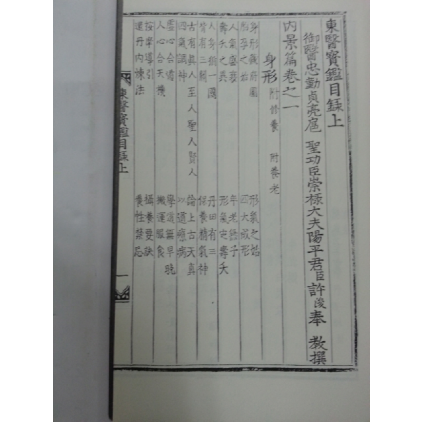 東醫寶鑑目錄上
御醫忠勤貞亮扈聖功臣崇祿大夫陽平君臣許浚奉教撰
內景篇卷之一
身形 附修養 附養老
身形藏府圖 形氣之始
胎孕之始 四大成形
人氣盛衰 年老無子
壽夭之異 形氣定壽夭
人身猶一國 丹田有三
背有三關 保養精氣神
古有眞人至人聖人賢人 論上古天眞
四氣調神 以道療病
虛心合道 學道無早晚
人心合天機 搬運服食
按摩導引 攝養要訣
還丹內煉法 養性禁忌
東醫寶鑑目錄上 一